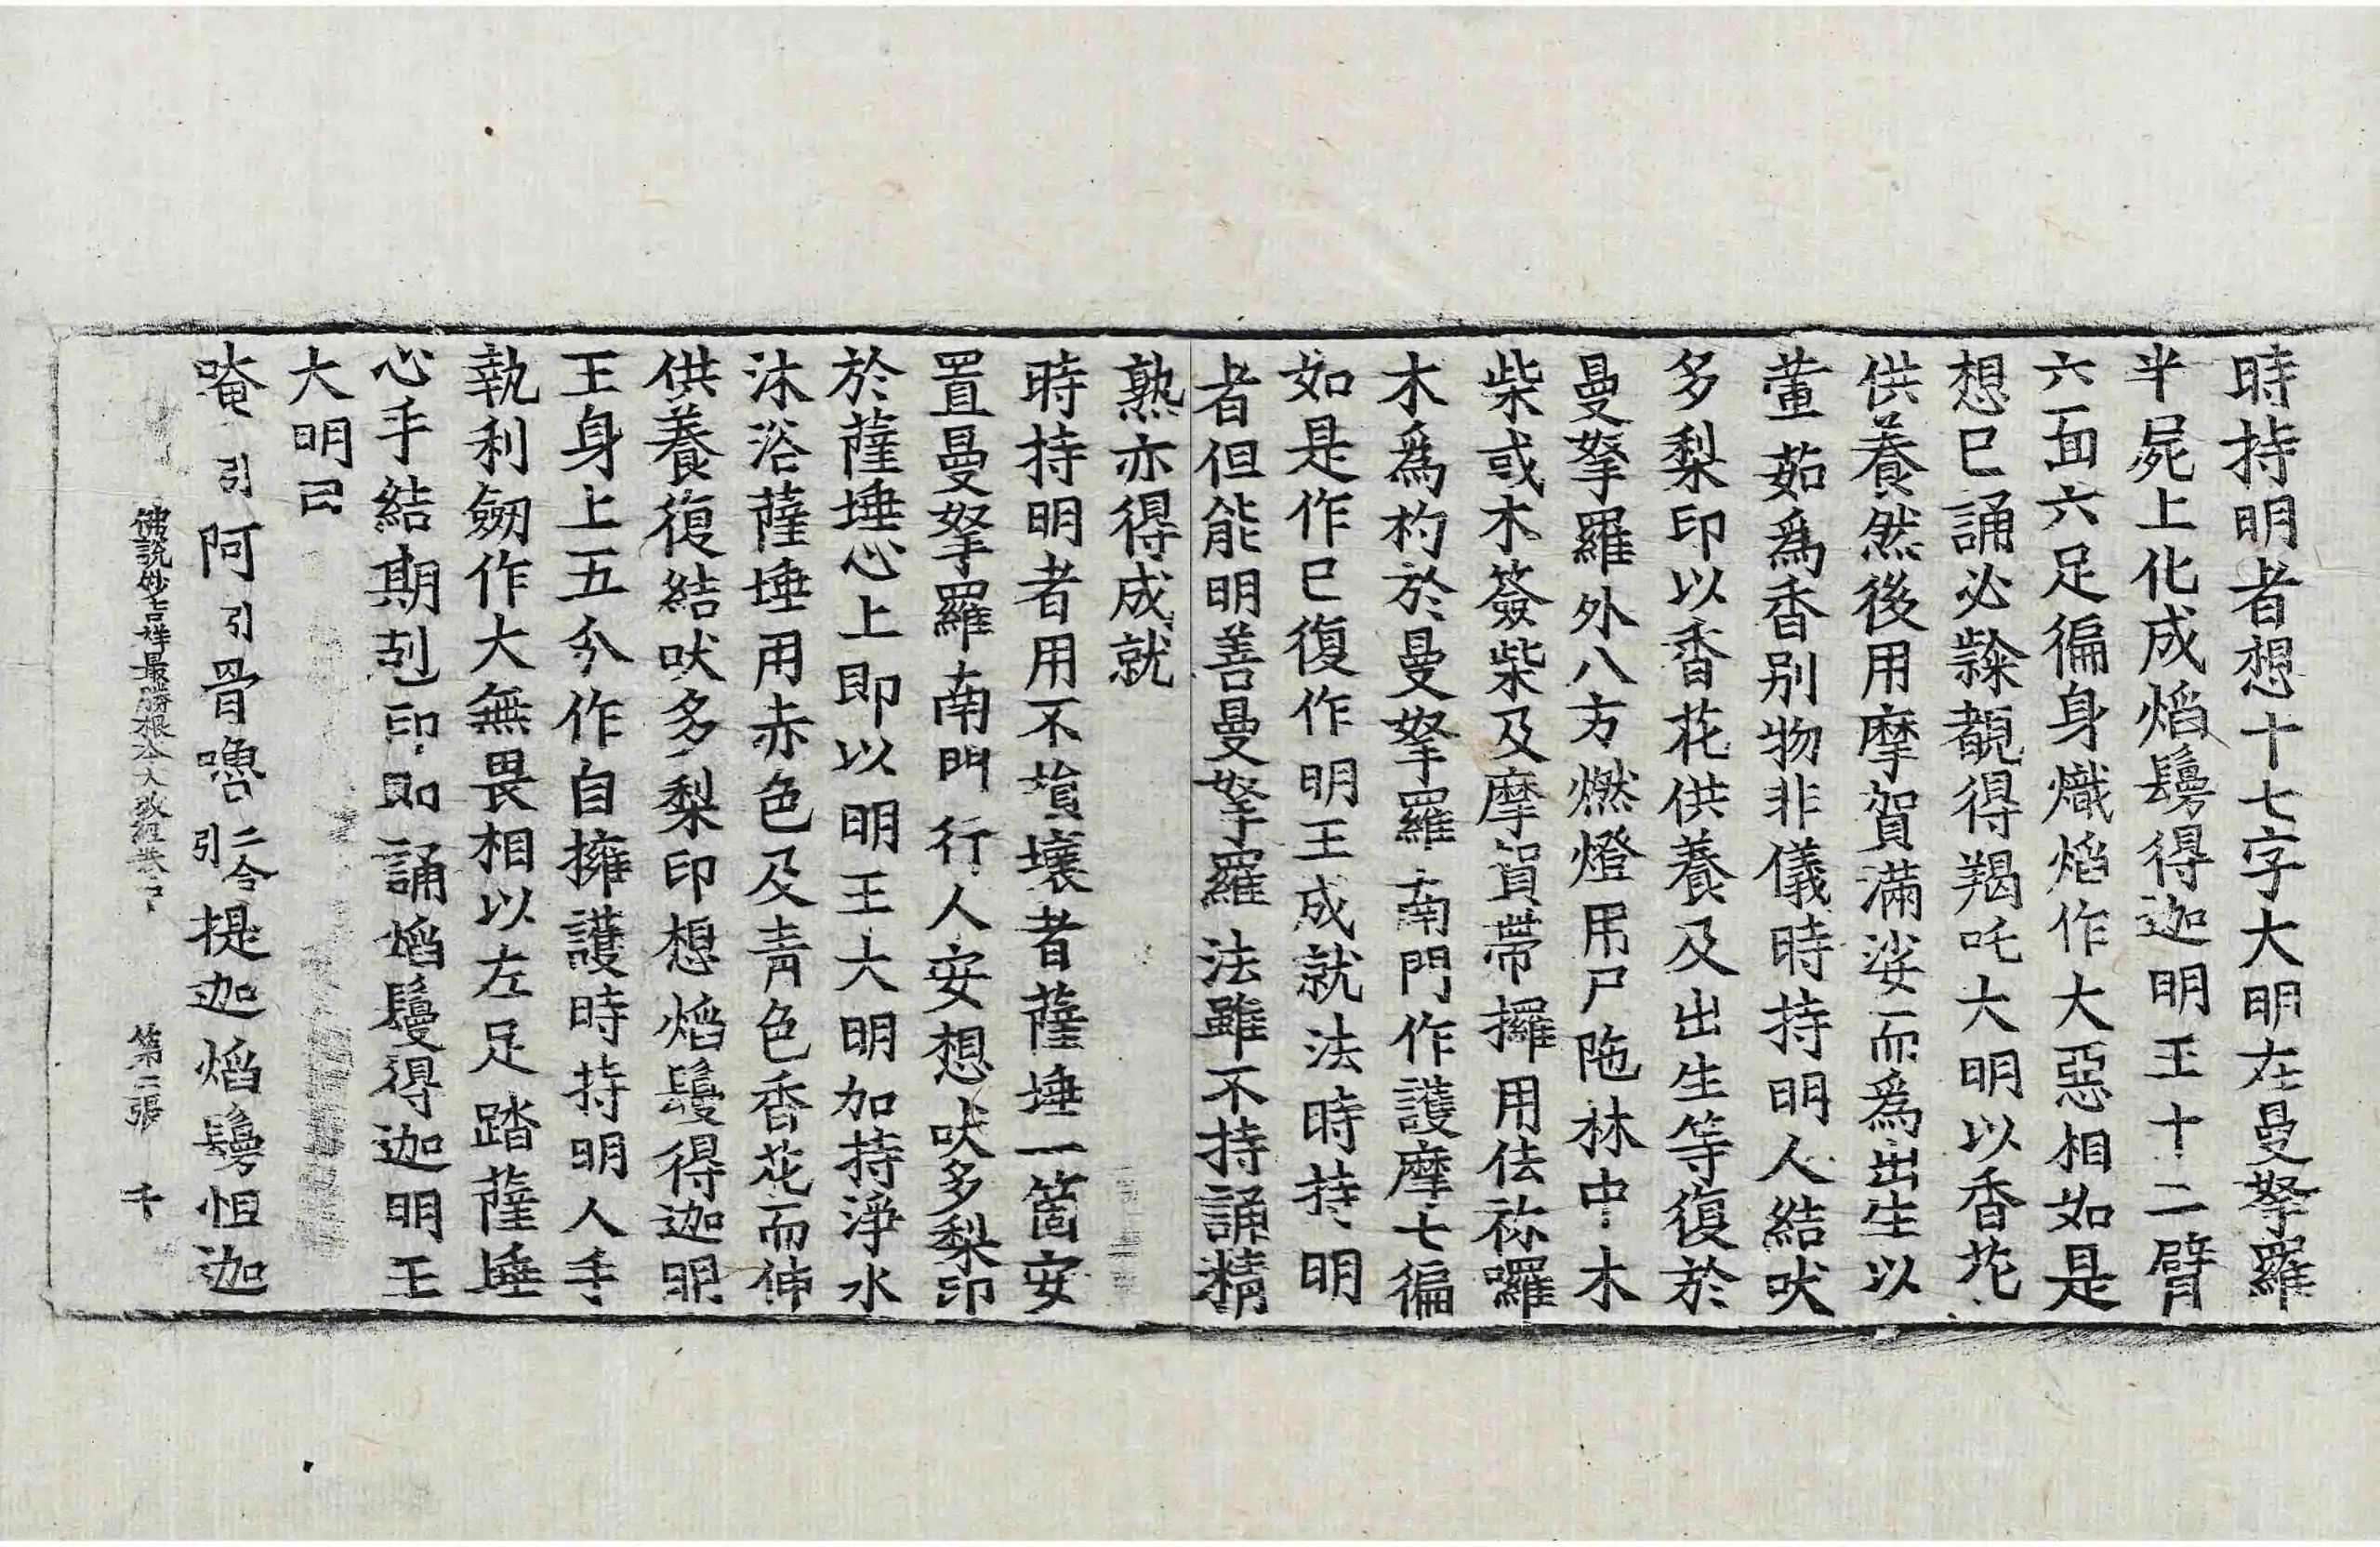 時持明者想十七字大明在曼拏羅
半屍上化成焰鬘得迦明王十二臂
六面六足徧身熾焰作大惡相如是
想已誦必隸覩得羯吒大明以香花
供養然後用摩賀滿娑而爲出生以
薰茹爲香別物非儀時持明人結吠
多梨印以香花供養及出生等復於
曼拏羅外八方燃燈用尸陁林中木
柴或木簽柴及摩賀帶攞用佉祢囉
木爲杓於曼拏羅南門作護摩七徧
如是作已復作明王成就法時持明
者但能明善曼拏羅法雖不持誦精
熟亦得成就
時持明者用不損壞者薩埵一箇安
置曼拏羅南門行人安想吠多梨印
於薩埵心上即以明王大明加持淨水
沐浴薩埵用赤色及青色香花而伸
供養復結吠多梨印想焰鬘得迦明
王身上五分作自擁護時持明人手
執利劒作大無畏相以左足踏薩埵
心手結期剋印即誦焰鬘得迦明王
大明曰
唵引阿引骨嚕二合引提迦焰鬘怛迦
佛說妙吉祥最勝根本大教經卷下 第二張 千